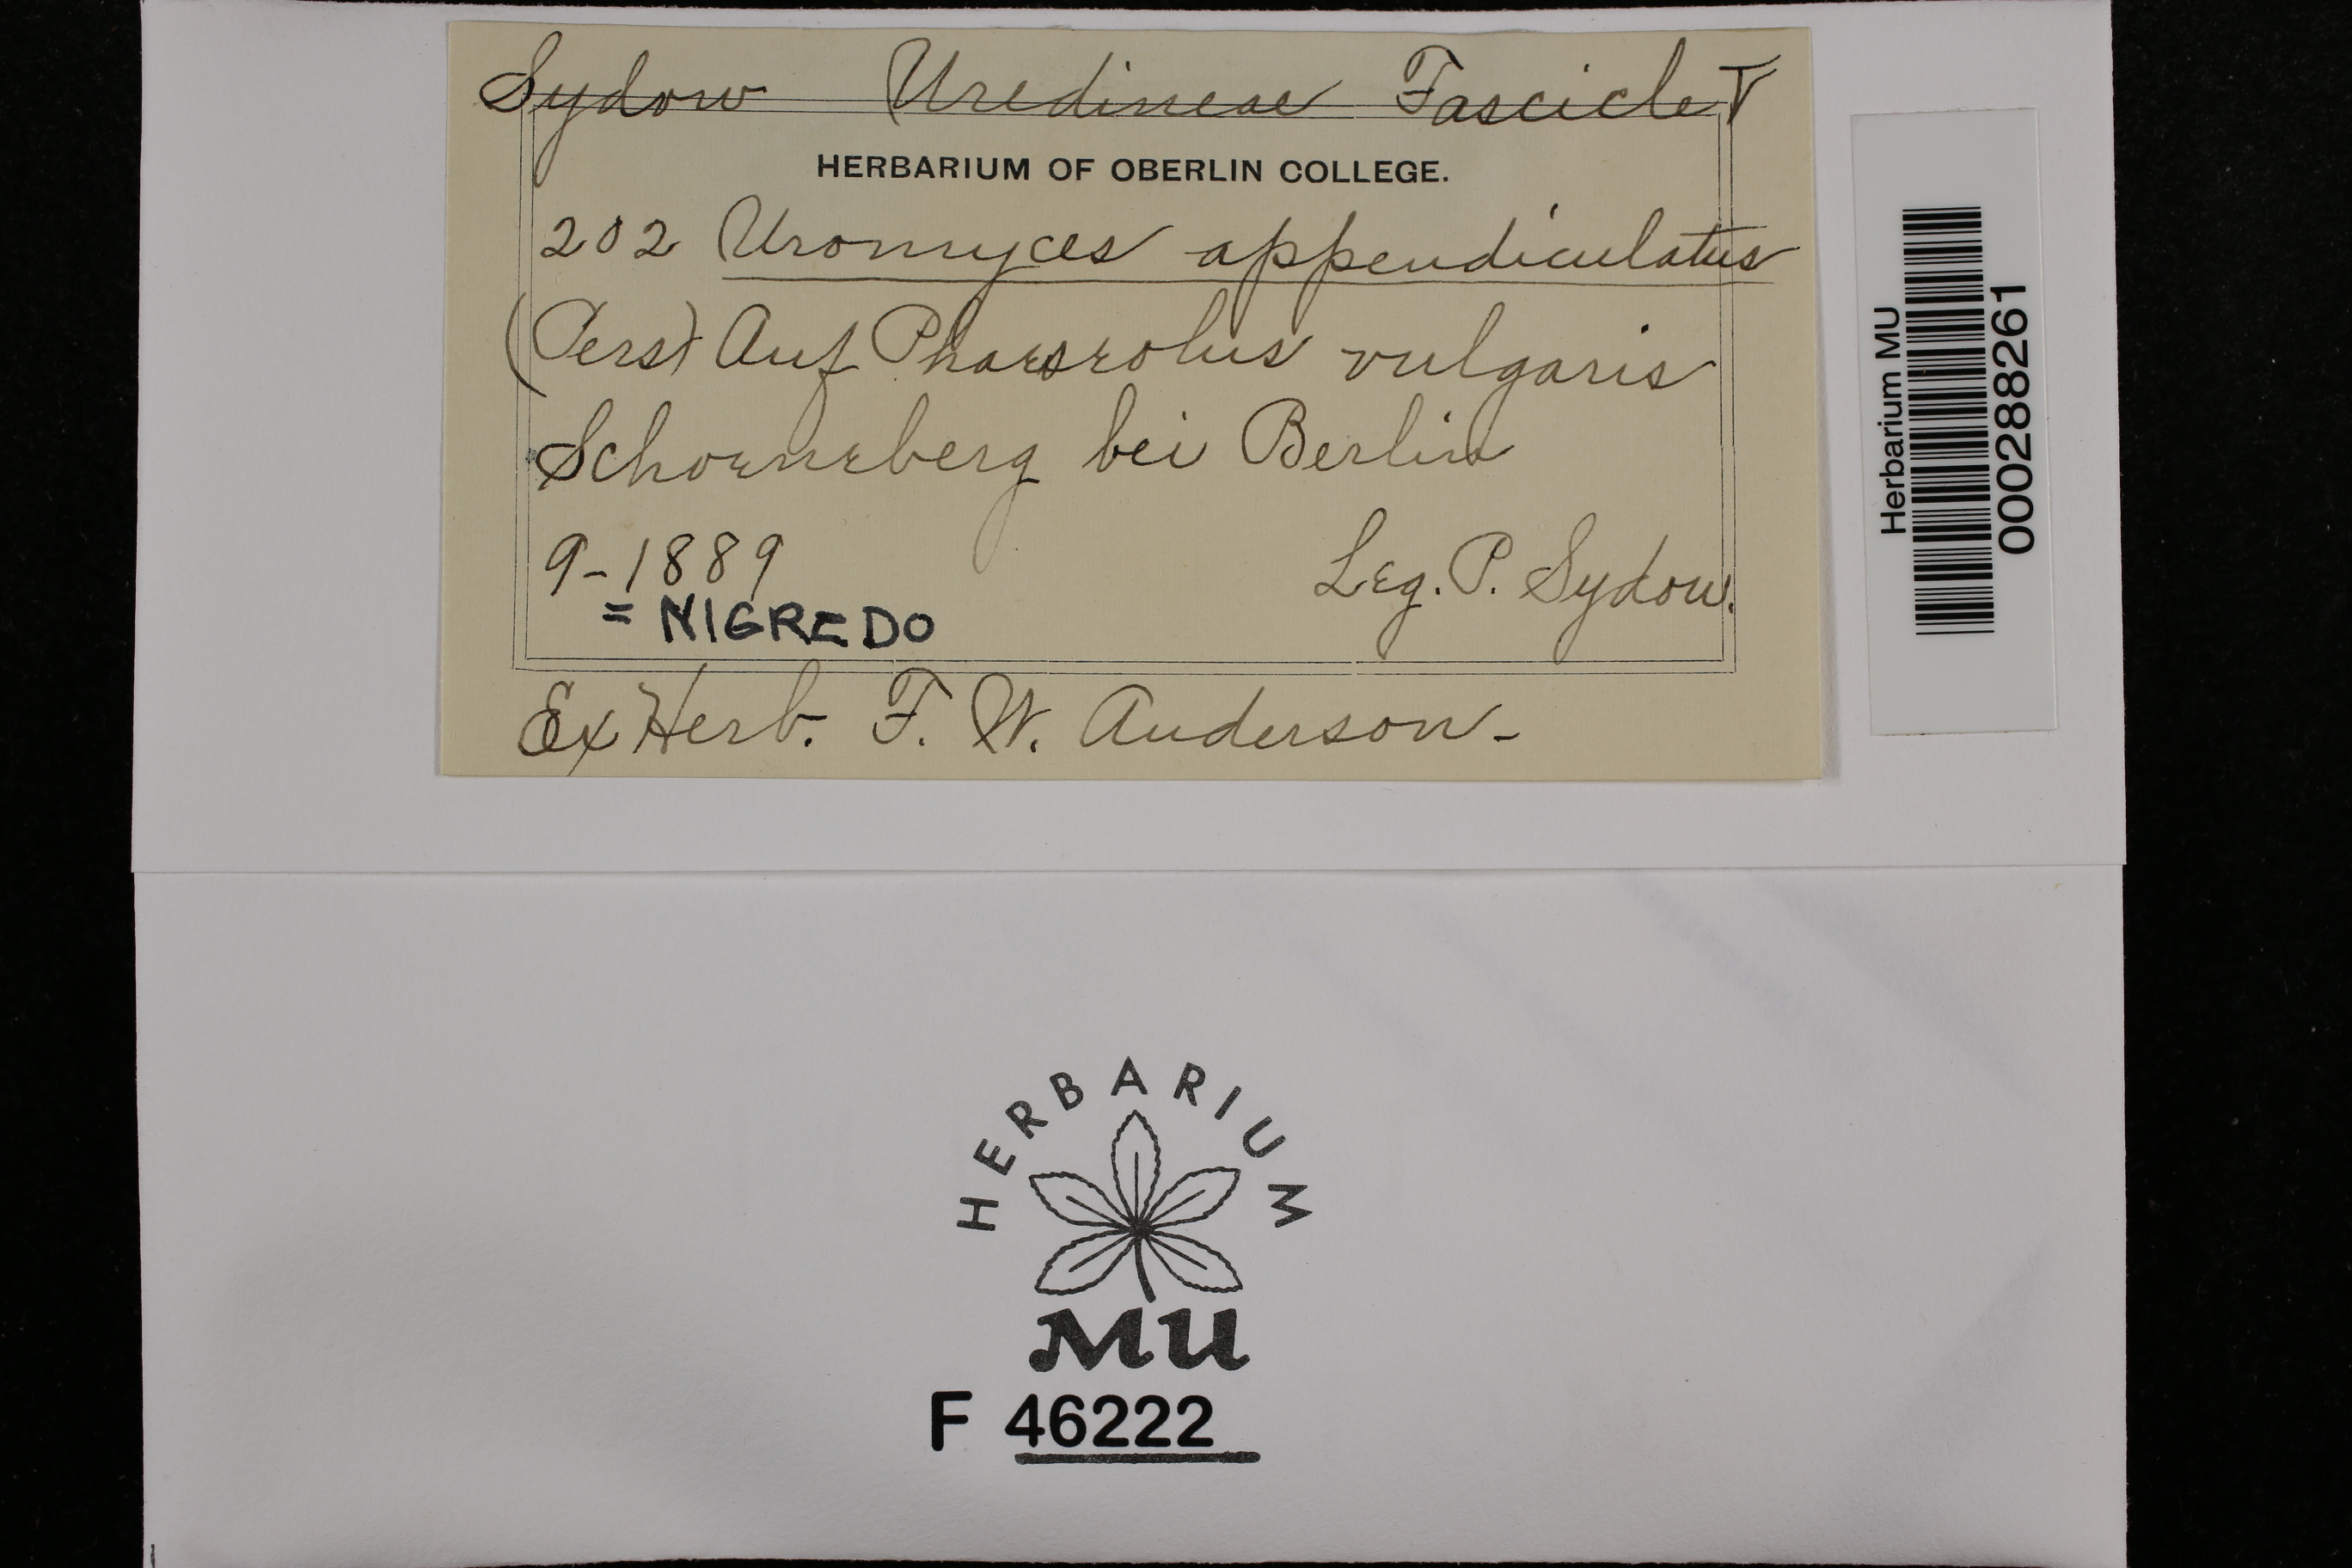 Sydow Uredineae Fascicle V
HERBARIUM OF OBERLIN COLLEGE.
202 Uromyces appendiculatus
(Pers) Auf Phaeseolus vulgaris
Schoeneberg bei Berlin
9-1889
Leg. P. Sydow.
= NIGREDO
Ex Herb. F. W. Anderson-
Herbarium MU
000288261
HERBARIUM
MU
F 46222